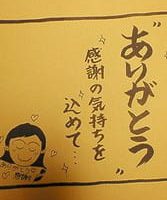 "ありがとう"
感謝の気持ちを
込めて…
感謝!